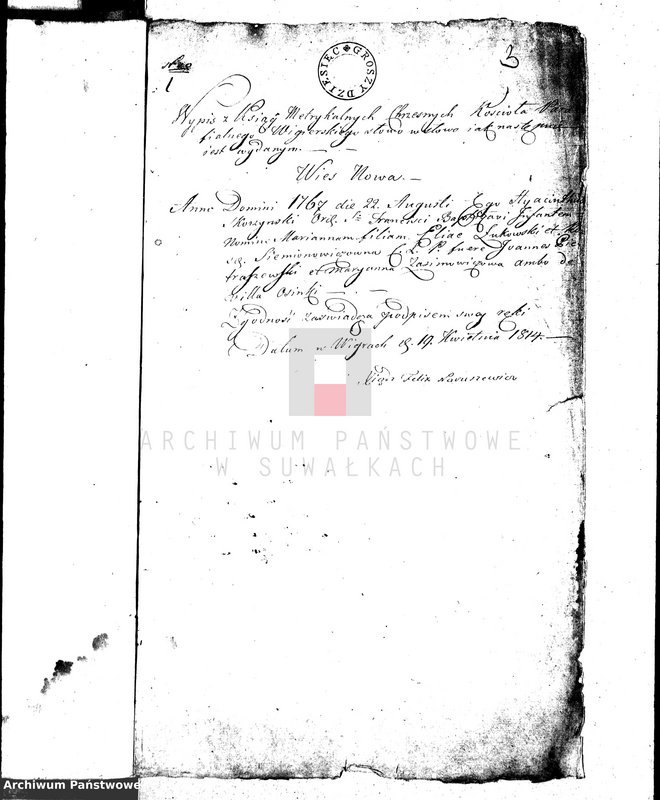 3
1
DZIESIĘC GROSZY
Wypis z Ksiąg Metrykalnych Chrzesnych Kościoła
fialnego Wigierskiego słowo w słowo iak nastempuie
iest wydanym. —
Wies Nowa. —
Anno Domini 1767 die 22. Augusti Ego Hyacinthus
Skorzynski Ord. St. Francisci Baptizavi Infantem
Nomine Mariannam filiam Eliae Lukowski et
Siemionowiczowna C. L. P. fuere Joannes Pie
traszewski et Maryanna Zasimowiczowa ambo de
Villa Osinki —
Zgodność zaswiadcza podpisem swoy ręki
Datum w Wigrach d. 19. Kwietnia 1814. —
Xiądz Felix Naruszewicz
ARCHIWUM PAŃSTWOWE
W SUWAŁKACH
Archiwum Państwowe